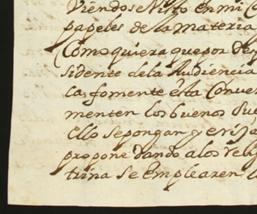 Viendose Visto en mi C
papeles de la materia
Como quiera que por De
sidente dela Audiencia
ca, fomente esta Conver
menten los buenos Su
ello se pongan y
propone dando alos Reli
trina se emplearen